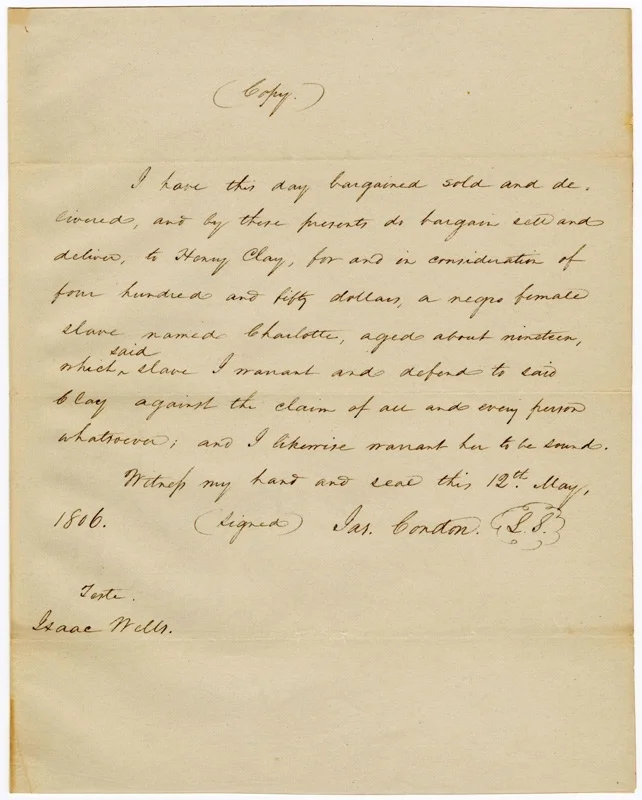 (Copy.)
I have this day bargained sold and de-
livered, and by these presents do bargain sell and
deliver, to Henry Clay, for and in consideration of
four hundred and fifty dollars, a negro female
slave named Charlotte, aged about nineteen,
which said slave I warrant and defend to said
Clay against the claim of all and every person
whatsoever; and I likewise warrant her to be sound.
Witness my hand and seal this 12th. May,
1806. (signed) Jas. Condon. (L.S.)
Teste.
Isaac Wells.